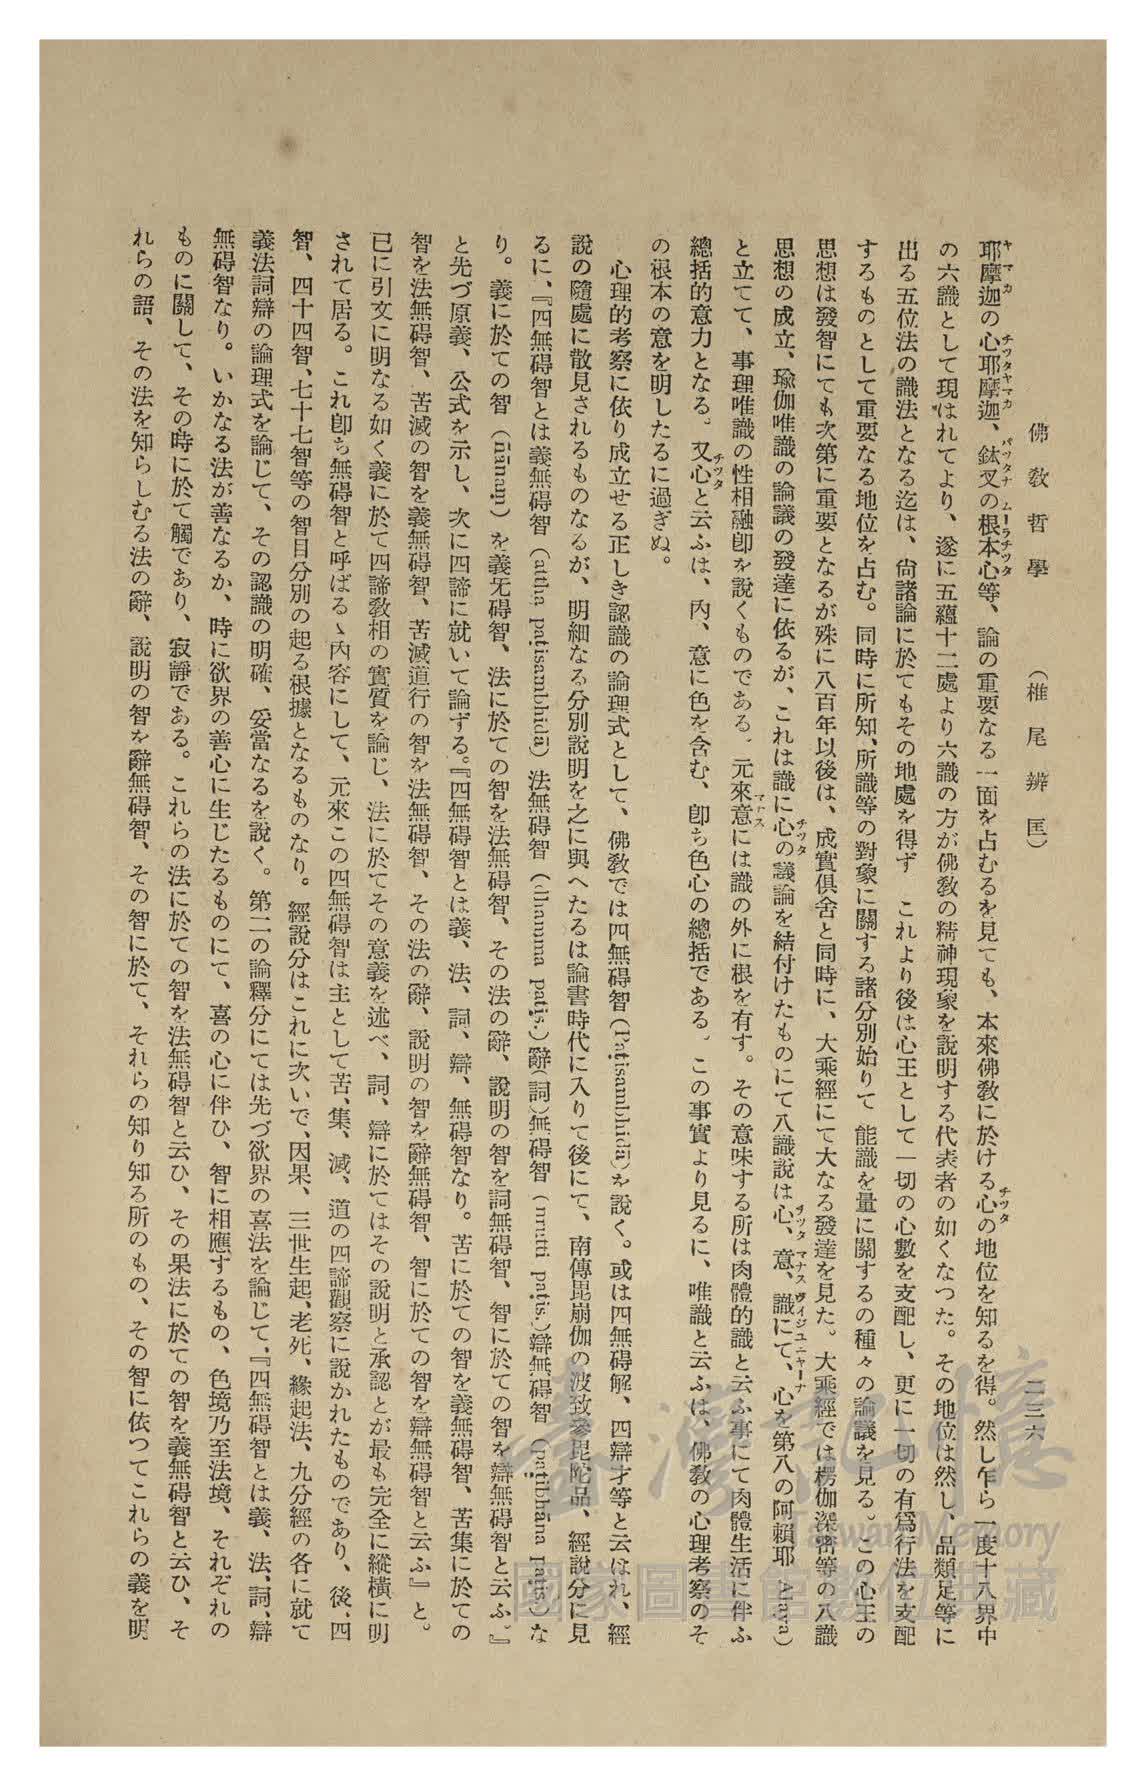 佛教哲學　（椎尾辨匡）　二三六
耶摩迦の心耶摩迦、鈦叉の根本心等、論の重要なる一面を占むるを見ても、本來佛教に於ける心の地位を知るを得。然し乍ら一度十八界中
の六識として現はれてより、遂に五蘊十二處より六識の方が佛教の精神現象を說明する代表者の如くなつた。その地位は然し、品類足等に
出る五位法の識法となる迄は、尙諸論に於てもその地處を得ず　これより後は心王として一切の心數を支配し、更に一切の有爲行法を支配
するものとして重要なる地位を占む。同時に所知、所識等の對象に關する諸分別始りて　能識を量に關するの種々の論議を見る。この心王の
思想は發智にても次第に重要となるが殊に八百年以後は、成實俱舍と同時に、大乘經にて大なる發達を見た。大乘經では楞伽深密等の八識
思想の成立、瑜伽唯識の論議の發達に依るが、これは識に心の議論を結付けたものにて八識說は心、意、識にて、心を第八の阿賴耶 Alaya）
と立てて、事理唯識の性相融卽を說くものである。元來意には識の外に根を有す。その意味する所は肉體的識と云ふ事にて肉體生活に伴ふ
總括的意力となる。又心と云ふは、內、意に色を含む、卽ち色心の總括である。この事實より見るに、唯識と云ふは、佛教の心理考察のそ
の根本の意を明したるに過ぎぬ。
心理的考察に依り成立せる正しき認識の論理式として、佛教では四無碍智（Paṭisambhidā）を說く。或は四無碍解、四辯才等と云はれ、經
說の隨處に散見されるものなるが、明細なる分別說明を之に與へたるは論書時代に入りて後にて、南傳毘崩伽の波致參毘陀品、經說分に見
るに、『四無碍智とは義無碍智（attha paṭisambhidā）法無碍智（dhamma paṭis.）辭（詞）無碍智（nrutti paṭis.）辯無碍智（paṭibhāna paṭis.）な
り。義に於ての智（ñānaṃ）を義无碍智、法に於ての智を法無碍智、その法の辭、說明の智を詞無碍智、智に於ての智を辯無碍智と云ふ。』
と先づ原義、公式を示し、次に四諦に就いて論ずる。『四無碍智とは義、法、詞、辯、無碍智なり。苦に於ての智を義無碍智、苦集に於ての
智を法無碍智、苦滅の智を義無碍智、苦滅道行の智を法無碍智、その法の辭、說明の智を辭無碍智、智に於ての智を辯無碍智と云ふ』と。
已に引文に明なる如く義に於て四諦教相の實質を論じ、法に於てその意義を述べ、詞、辯に於てはその說明と承認とが最も完全に縱橫に明
されて居る。これ卽ち無碍智と呼ばるゝ內容にして、元來この四無碍智は主として苦、集、滅、道の四諦觀察に說かれたものであり、後、四
智、四十四智、七十七智等の智目分別の起る根據となるものなり。經說分はこれに次いで、因果、三世生起、老死、緣起法、九分經の各に就て
義法詞辯の論理式を論じて、その認識の明確、妥當なるを說く。第二の論釋分にては先づ欲界の喜法を論じて、『四無碍智とは義、法、詞、辯
無碍智なり。いかなる法が善なるか、時に欲界の善心に生じたるものにて、喜の心に伴ひ、智に相應するもの、色境乃至法境、それぞれの
ものに關して、その時に於て觸であり、寂靜である。これらの法に於ての智を法無碍智と云ひ、その果法に於ての智を義無碍智と云ひ、そ
れらの語、その法を知らしむる法の辭、說明の智を辭無碍智、その智に於て、それらの知り知る所のもの、その智に依つてこれらの義を明
臺灣記憶
Taiwan Memory
國家圖書館數位典藏